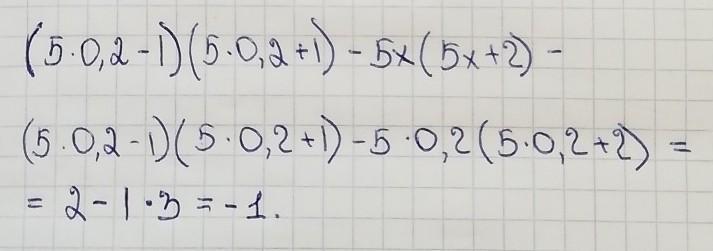 (5·0,2-1)(5·0,2+1)-5x(5x+2)-
(5·0,2-1)(5·0,2+1)-5·0,2(5·0,2+2)=
=2-1·3=-1.